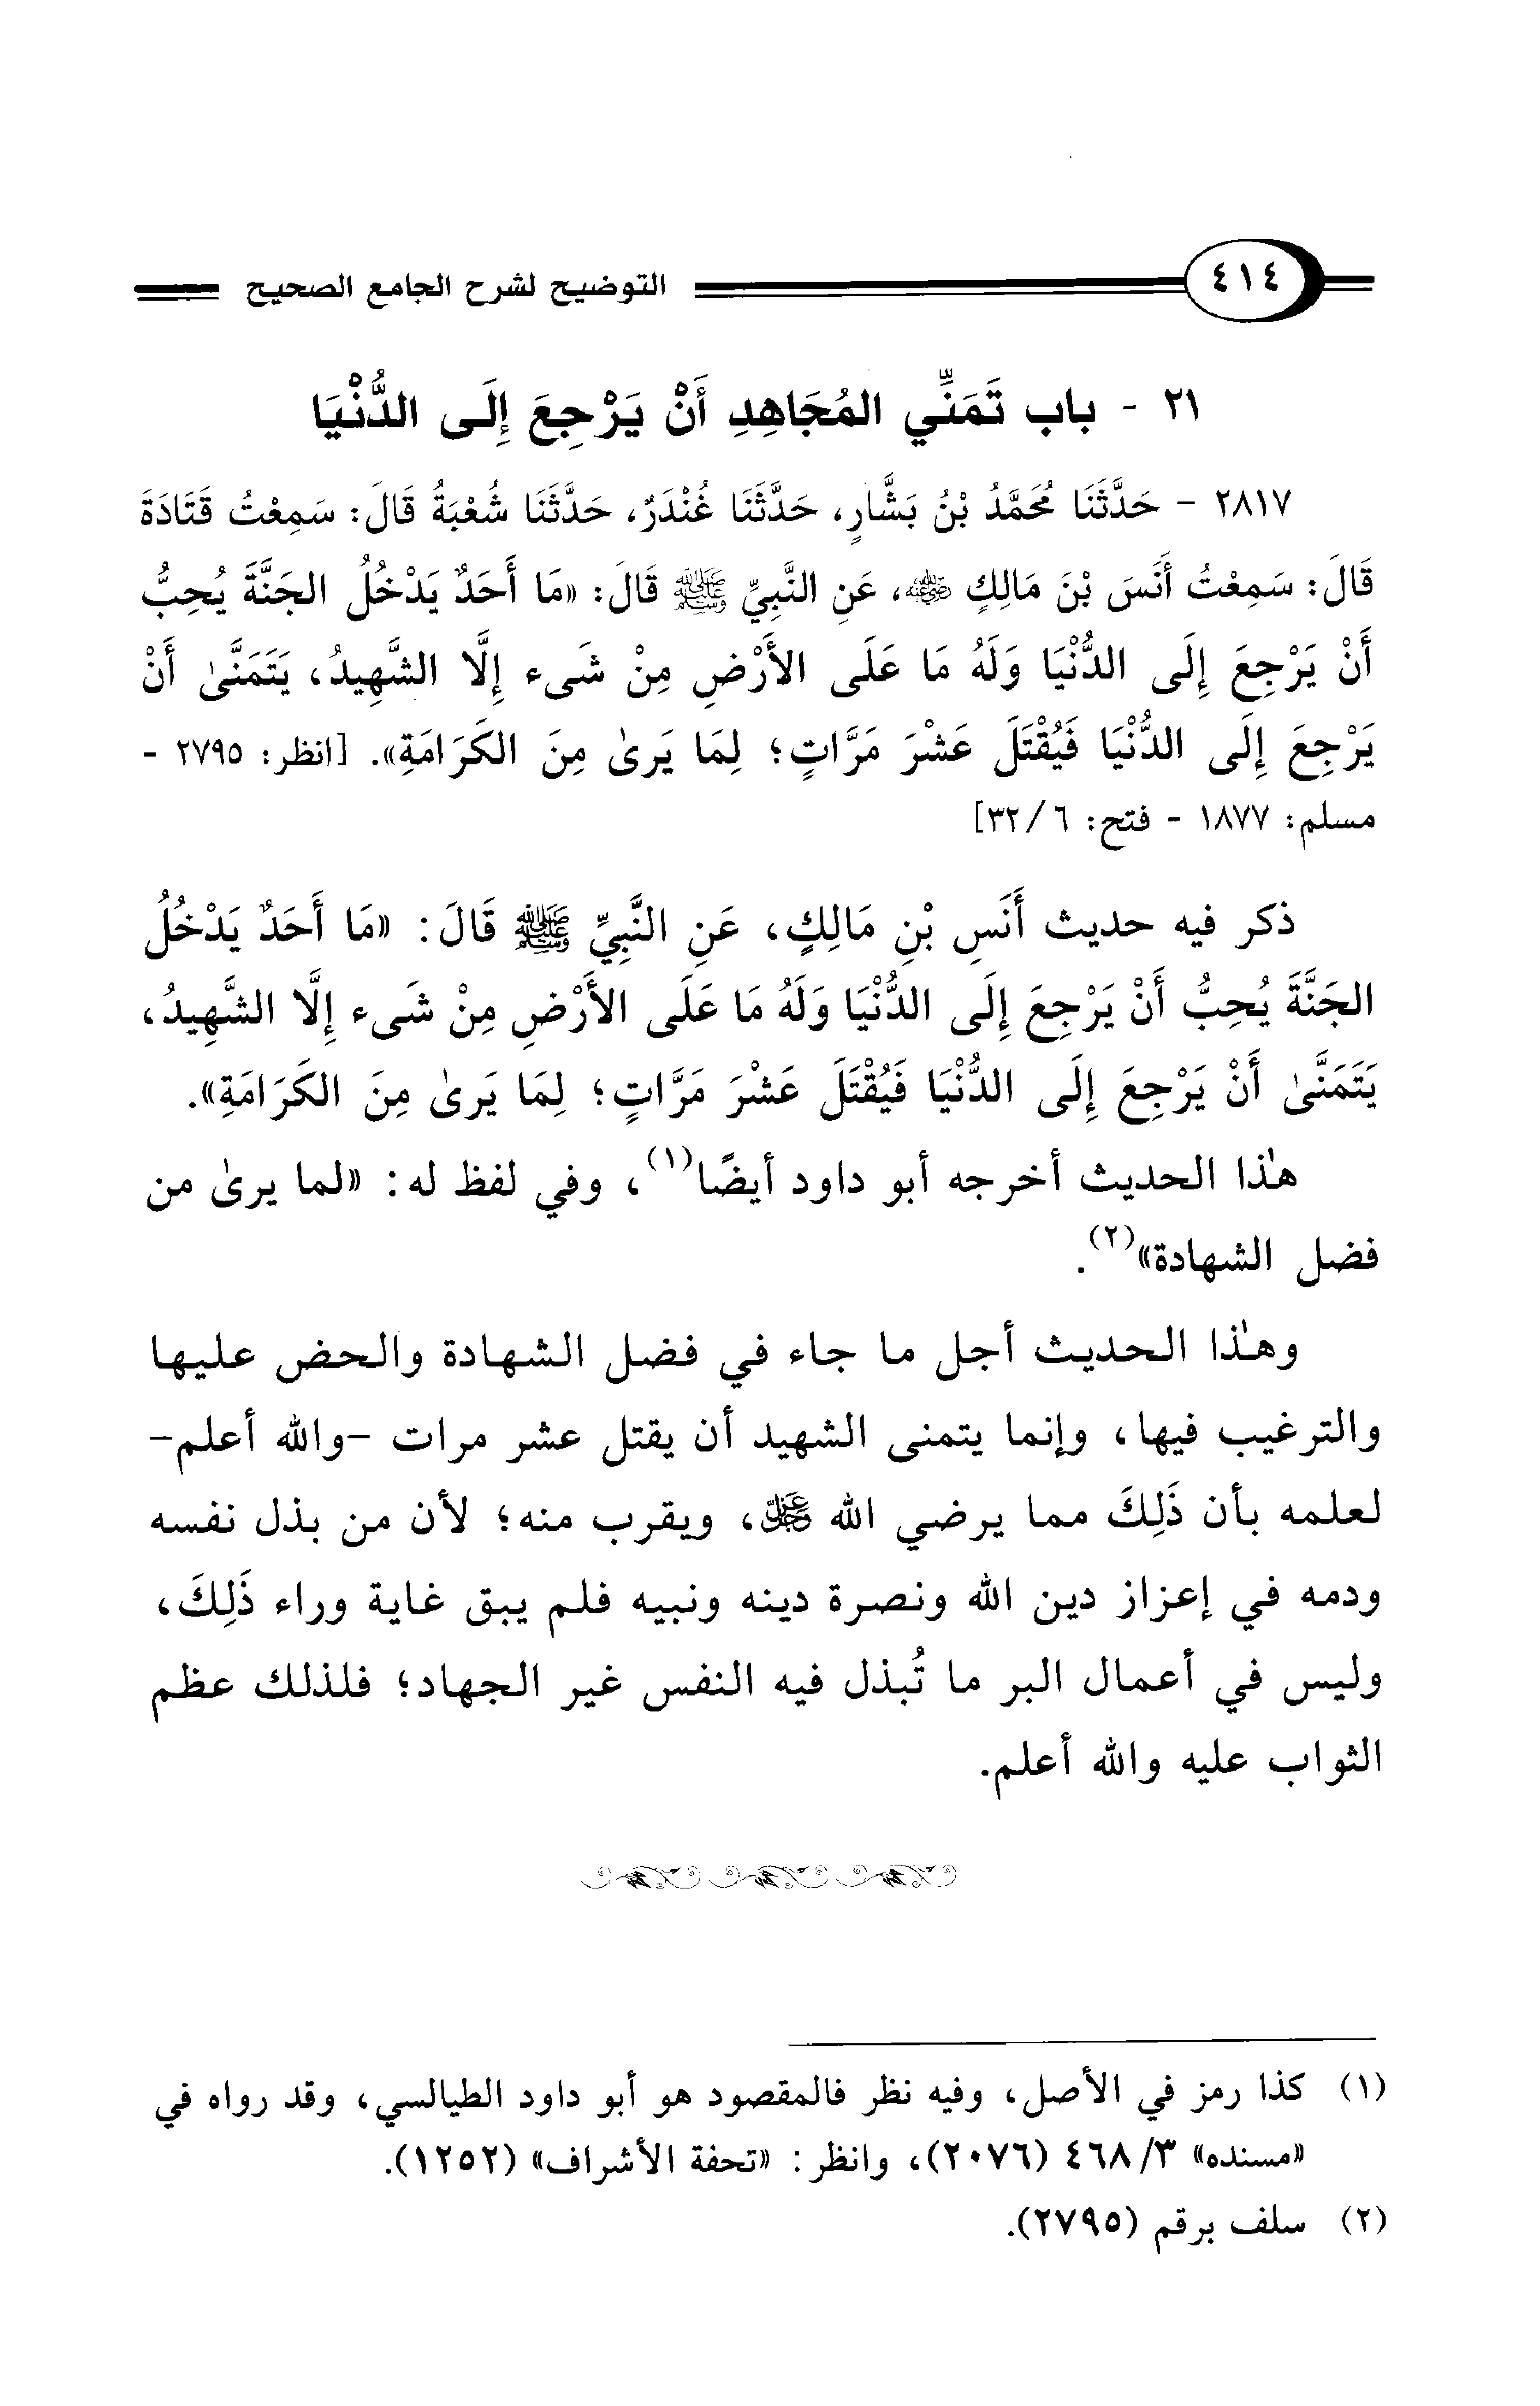 ٤١٤ التوضيح لشرح الجامع الصحيح
٢١ - باب تَمَنِّي المُجَاهِدِ أَنْ يَرْجِعَ إِلَى الدُّنْيَا
٢٨١٧ - حَدَّثَنَا مُحَمَّدُ بْنُ بَشَّارٍ، حَدَّثَنَا غُنْدَرٌ، حَدَّثَنَا شُعْبَةُ قَالَ: سَمِعْتُ قَتَادَةَ
قَالَ: سَمِعْتُ أَنَسَ بْنَ مَالِكٍ رضي الله عنه، عَنِ النَّبِيِّ ﷺ قَالَ: «مَا أَحَدٌ يَدْخُلُ الجَنَّةَ يُحِبُّ
أَنْ يَرْجِعَ إِلَى الدُّنْيَا وَلَهُ مَا عَلَى الأَرْضِ مِنْ شَىء إِلَّا الشَّهِيدُ، يَتَمَنَّىٰ أَنْ
يَرْجِعَ إِلَى الدُّنْيَا فَيُقْتَلَ عَشْرَ مَرَّاتٍ؛ لِمَا يَرىٰ مِنَ الكَرَامَةِ». [انظر: ٢٧٩٥ -
مسلم: ١٨٧٧ - فتح: ٦/ ٣٢]
ذكر فيه حديث أَنَسِ بْنِ مَالِكٍ، عَنِ النَّبِيِّ ﷺ قَالَ: «مَا أَحَدٌ يَدْخُلُ
الجَنَّةَ يُحِبُّ أَنْ يَرْجِعَ إِلَى الدُّنْيَا وَلَهُ مَا عَلَى الأَرْضِ مِنْ شَىء إِلَّا الشَّهِيدُ،
يَتَمَنَّىٰ أَنْ يَرْجِعَ إِلَى الدُّنْيَا فَيُقْتَلَ عَشْرَ مَرَّاتٍ؛ لِمَا يَرىٰ مِنَ الكَرَامَةِ».
هٰذا الحديث أخرجه أبو داود أيضًا(١)، وفي لفظ له: «لما يرىٰ من
فضل الشهادة»(٢).
وهٰذا الحديث أجل ما جاء في فضل الشهادة والحض عليها
والترغيب فيها، وإنما يتمنى الشهيد أن يقتل عشر مرات -والله أعلم-
لعلمه بأن ذَلِكَ مما يرضي الله عز وجل، ويقرب منه؛ لأن من بذل نفسه
ودمه في إعزاز دين الله ونصرة دينه ونبيه فلم يبق غاية وراء ذَلِكَ،
وليس في أعمال البر ما تُبذل فيه النفس غير الجهاد؛ فلذلك عظم
الثواب عليه والله أعلم.
(١) كذا رمز في الأصل، وفيه نظر فالمقصود هو أبو داود الطيالسي، وقد رواه في
«مسنده» ٣/ ٤٦٨ (٢٠٧٦)، وانظر: «تحفة الأشراف» (١٢٥٢).
(٢) سلف برقم (٢٧٩٥).